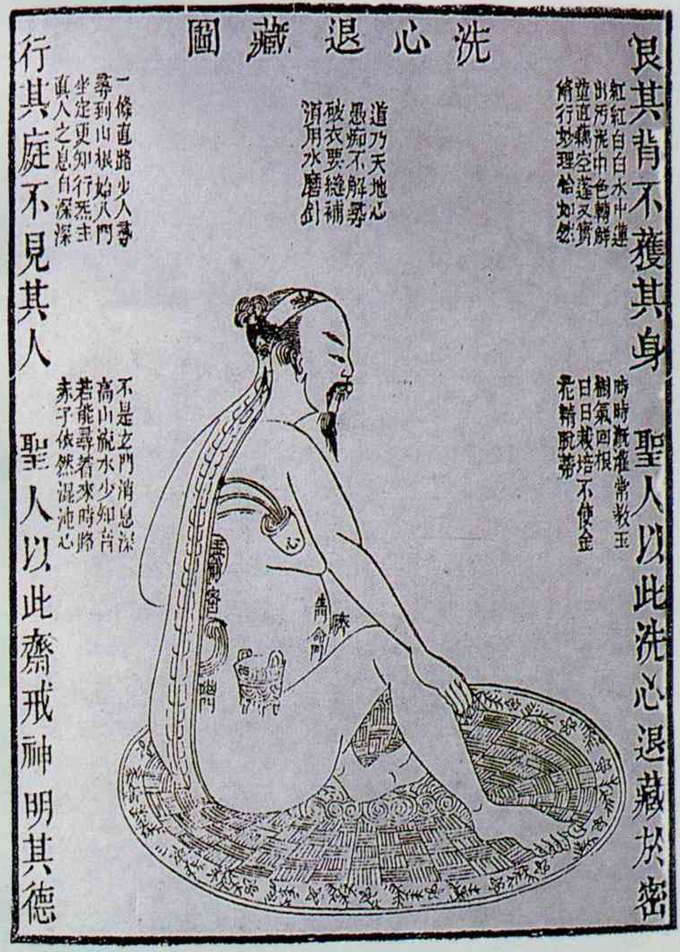 洗心退藏圖
艮其背不獲其身 聖人以此洗心退藏於密
紅紅白白水中蓮
出污泥中色轉鮮
莖直藕空蓬又實
修行妙理恰如然
時時漑灌常教玉
樹氣回根
日日栽培不使金
花精脫蒂
道乃天地心
愚痴不解尋
破衣要縫補
須用水磨針
一條直路少人尋
尋到山根始入門
坐定更知行炁主
真人之息自深深
不是玄門消息深
高山流水少知音
若能尋着來時路
赤子依然混沌心
行其庭不見其人 聖人以此齋戒神明其德
心
臍
生命門